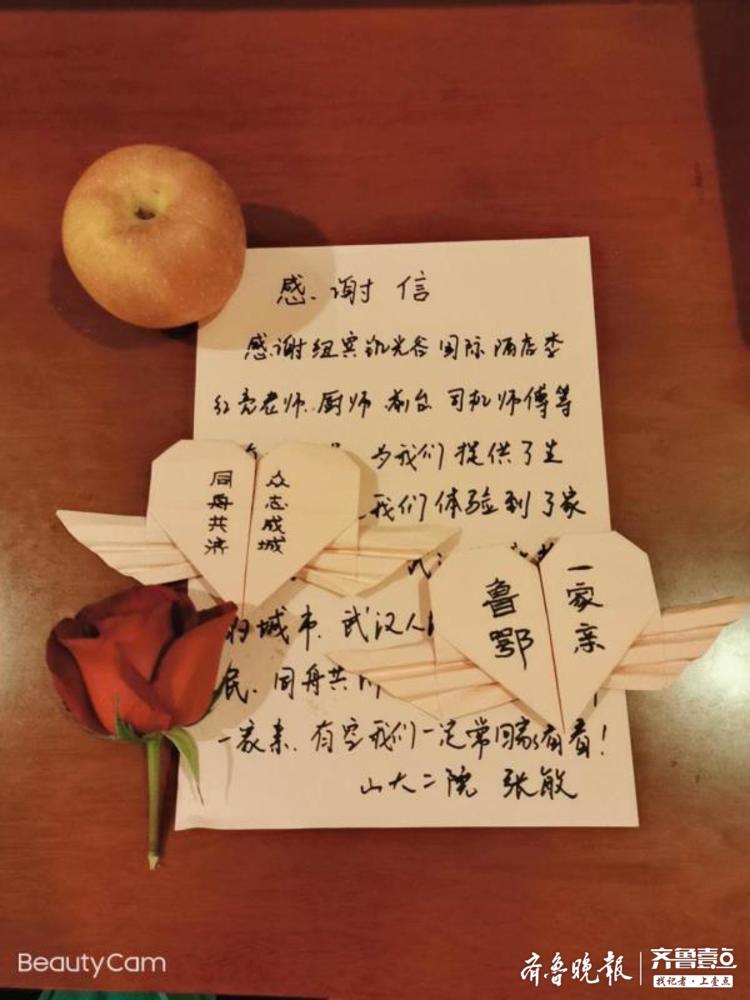 感谢信
感谢纽宾凯光谷国际酒店李
红亮老师、厨师 前台 司机师傅等
为我们提供了生
我们体验到了家
众志成城
同舟共济
一家亲
鲁鄂
的城市、武汉人
民、同舟共
一家亲、有空我们一定常回家看看!
山大二院 张敏
BeautyCam
齐鲁晚报
齐鲁壹点
找记者·上壹点